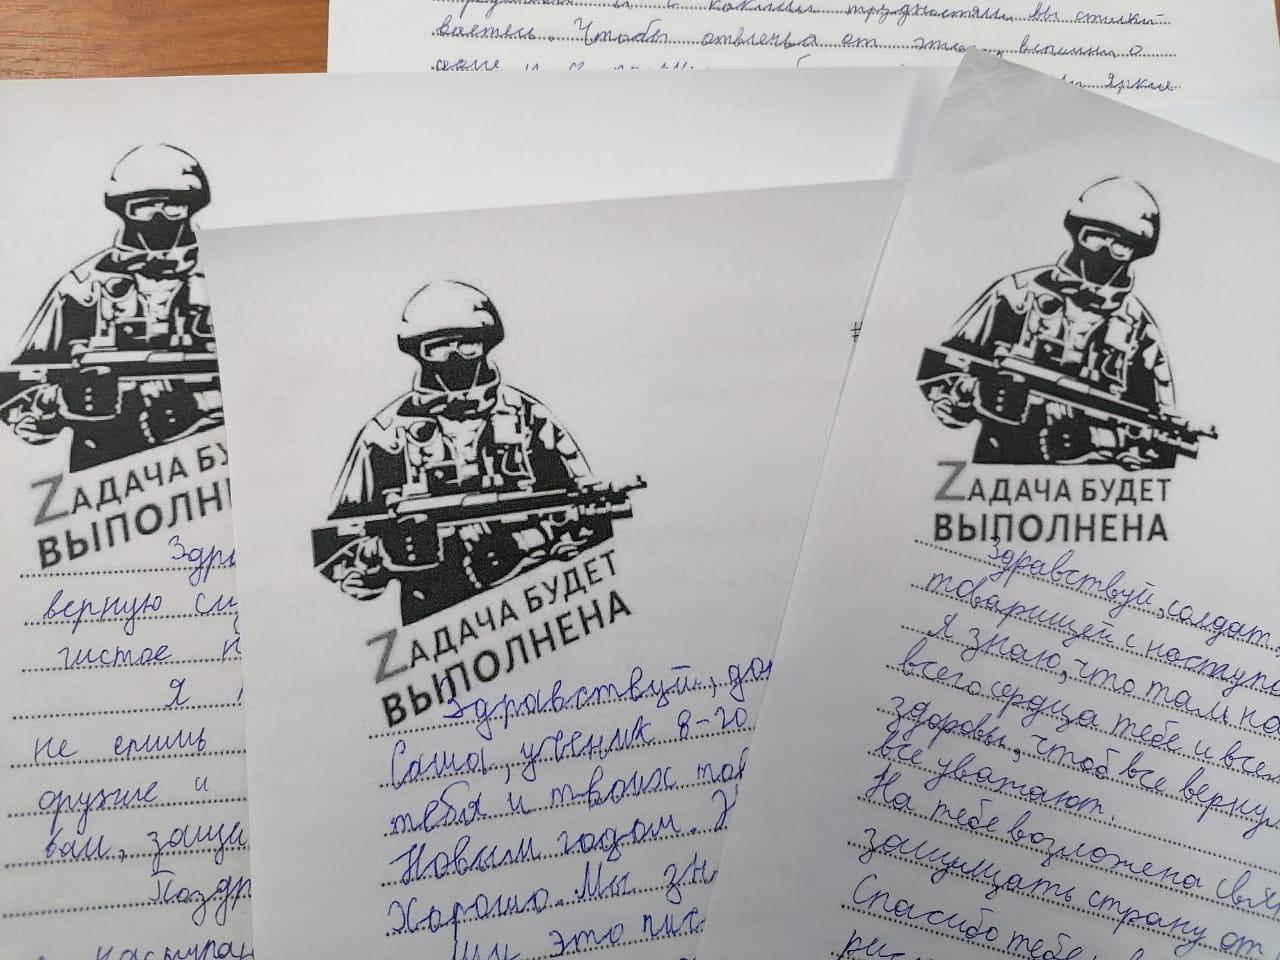 трудностями вы сталки-
ваетесь. Чтобы отвлечься от этого, вспомни о
яркие
ZАДАЧА БУ
ВЫПОЛН
верную
чистое
Я
не спишь
оружие и
вам, защи
Поздр
наступаю
#
ZАДАЧА БУДЕТ
ВЫПОЛНЕНА
Здравствуй, до
Саша, ученик 8-го
тебя и твоих тов
Новым годом.
Хорошо. Мы зн
это пис
ZАДАЧА БУДЕТ
ВЫПОЛНЕНА
Здравствуй, солдат.
товарищей с наступа
Я знаю, что там на
всего сердца тебе и всем
здоровы, чтоб все верну
все уважают.
На тебе возложена свящ
защищать страну от
Спасибо тебе,